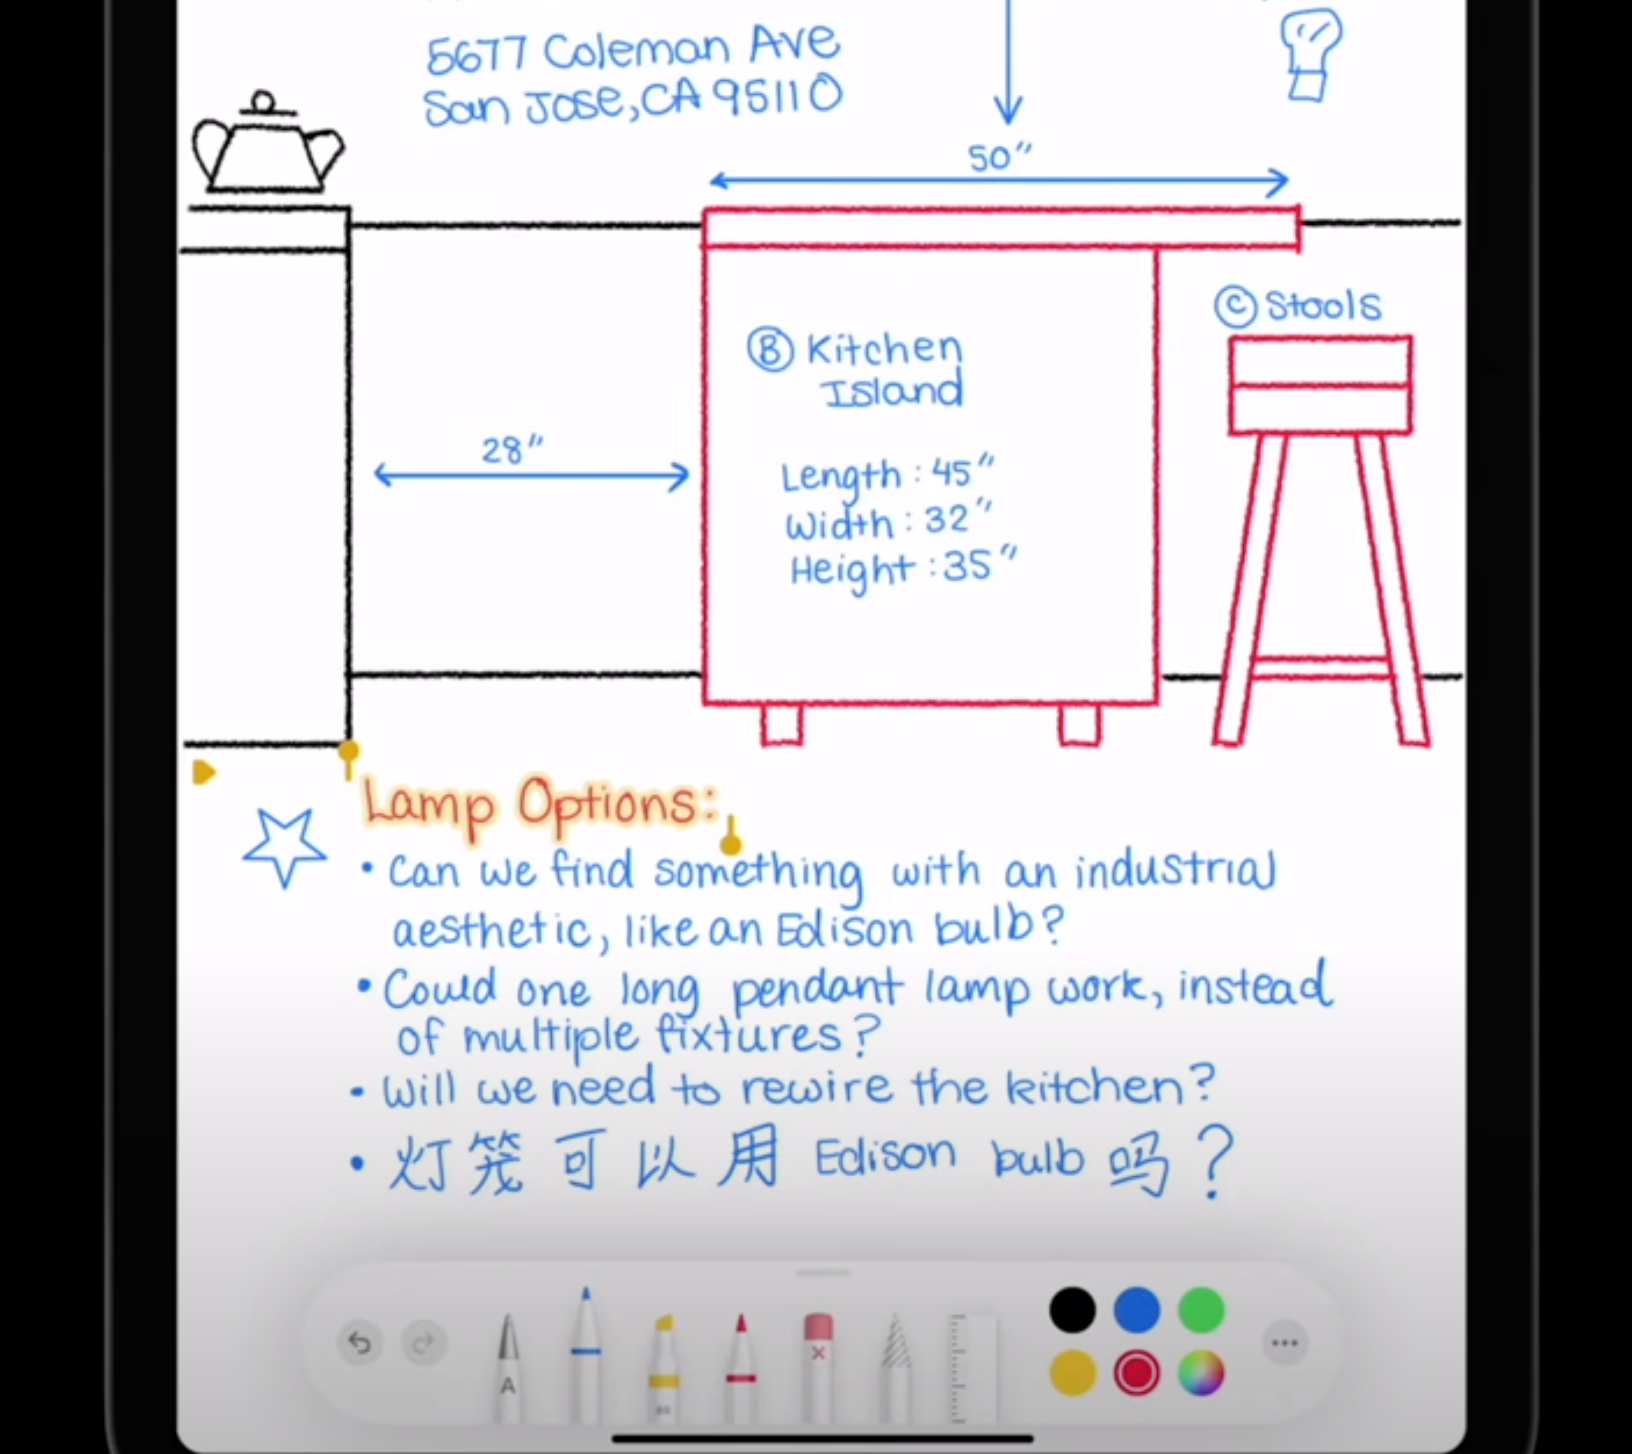 5677 Coleman Ave
San Jose, CA 95110
50"
Ⓒ Stools
Ⓑ Kitchen
Island
28"
Length: 45"
Width: 32"
Height: 35"
Lamp Options:
• Can we find something with an industrial
aesthetic, like an Edison bulb?
• Could one long pendant lamp work, instead
of multiple fixtures?
• Will we need to rewire the kitchen?
• 灯笼可以用 Edison bulb 吗?
A
80